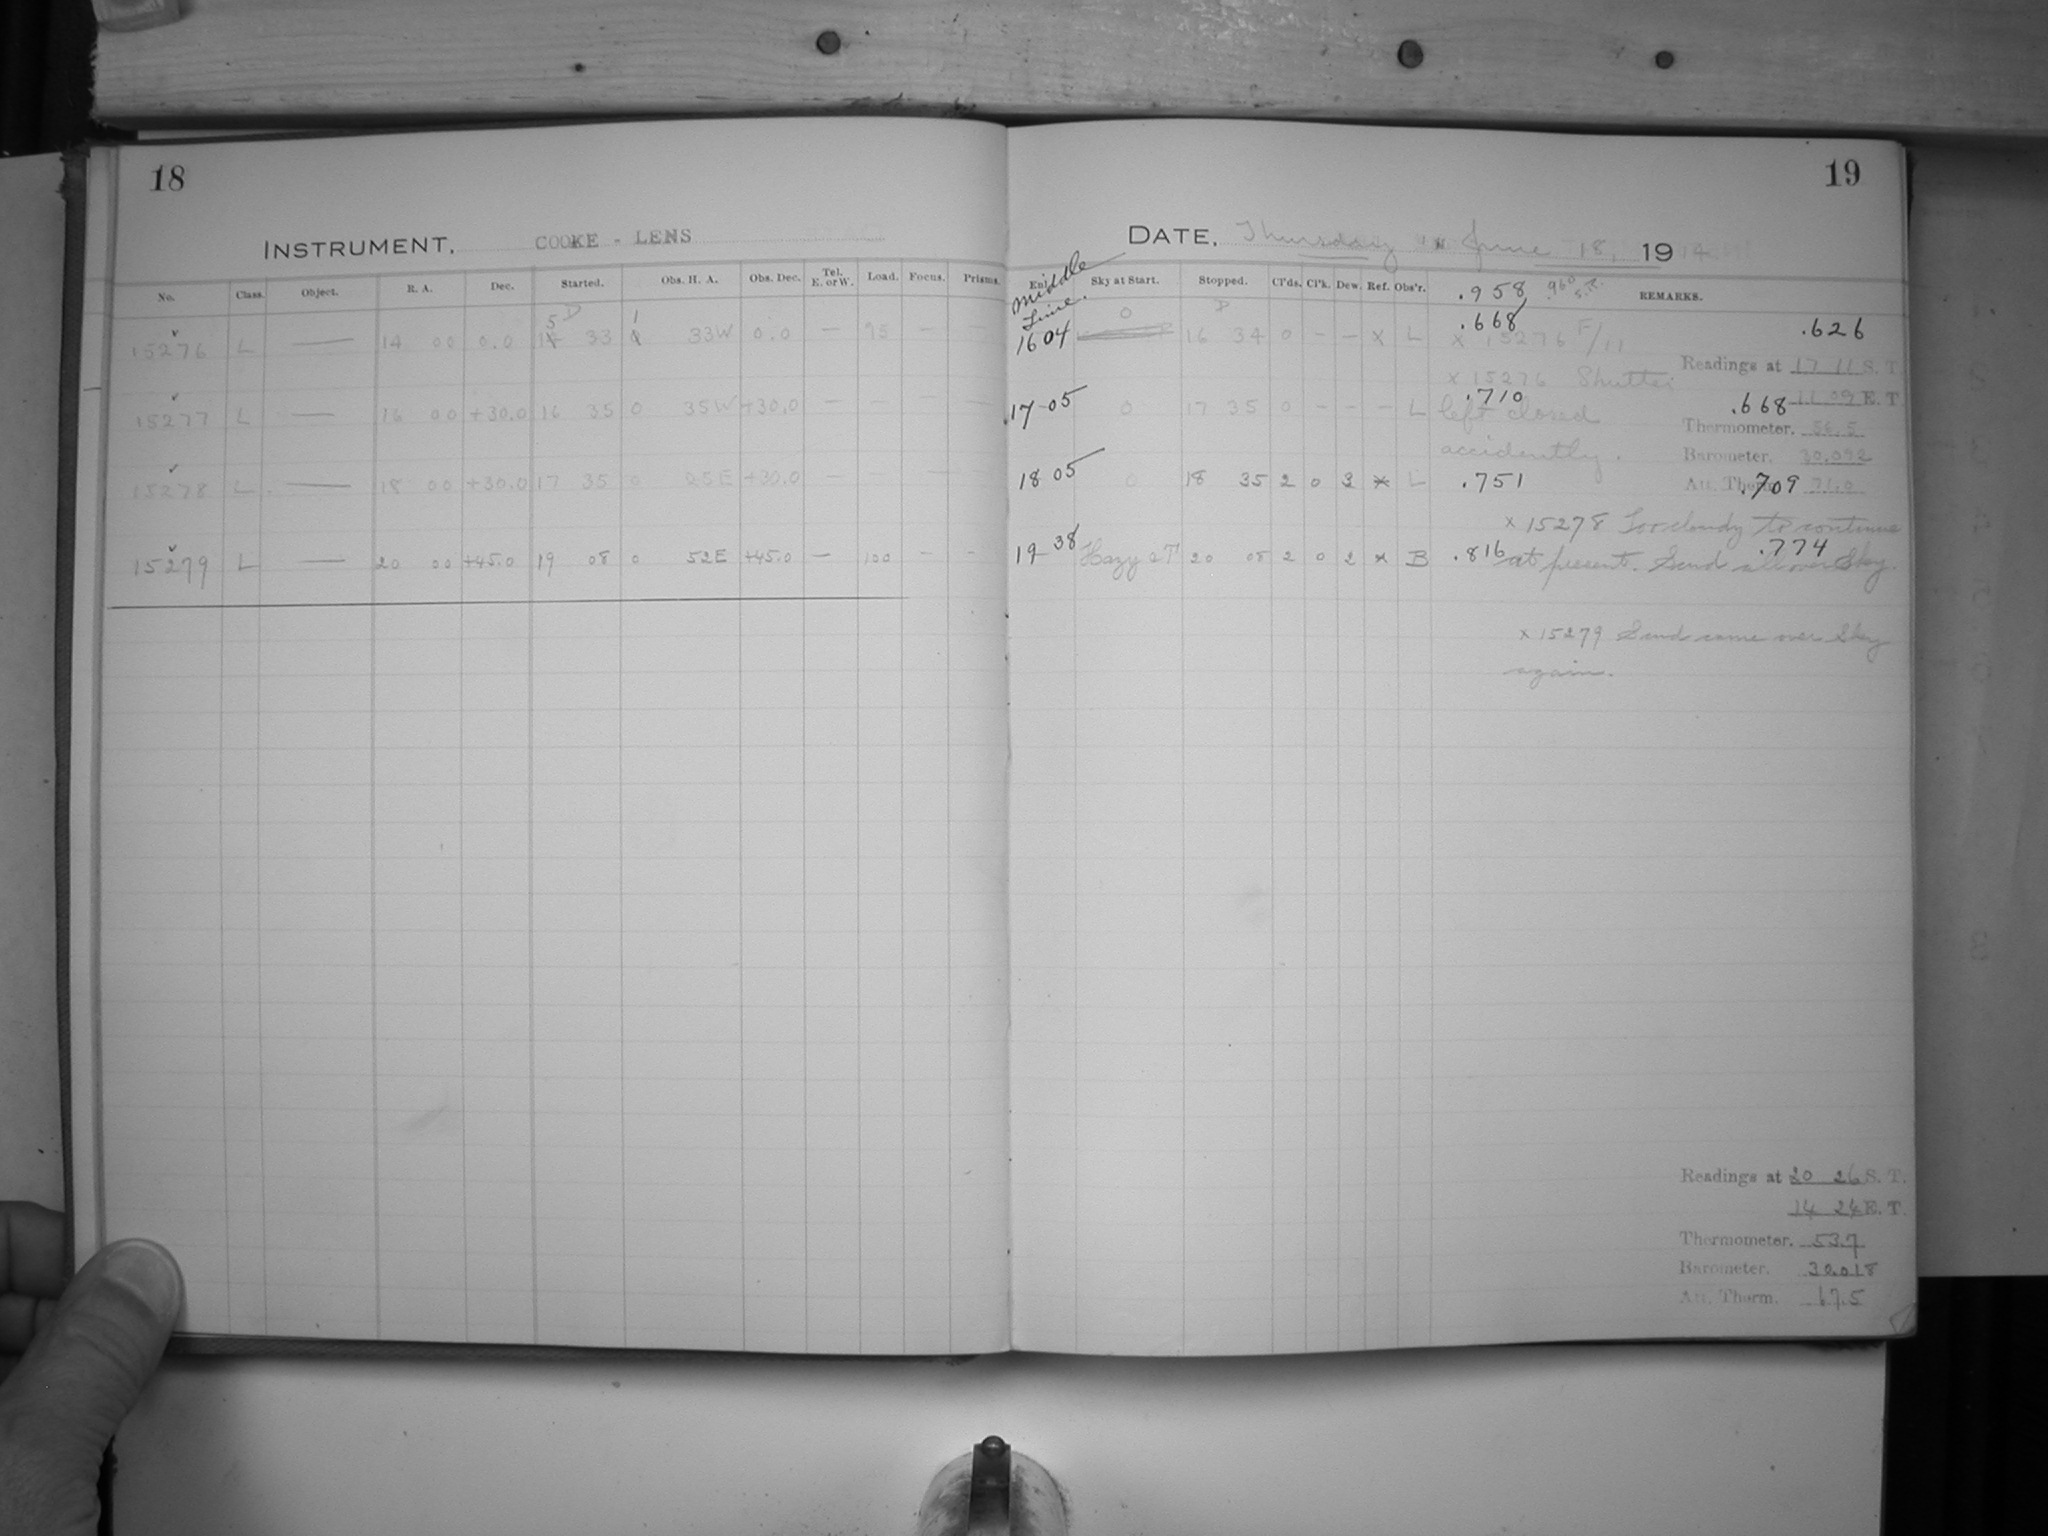 18
INSTRUMENT, COOKE - LENS
No. Class. Object. R. A. Dec. Started. Obs. H. A. Obs. Dec. Tel. E. or W. Load. Focus. Prisms.
15276 L — 14 00 0.0 15 33 1 33W 0.0 — 95 —
15277 L — 16 00 +30.0 16 35 0 35W +30.0 — — — —
15278 L — 18 00 +30.0 17 35 0 25E +30.0 — — — —
15279 L — 20 00 +45.0 19 08 0 52E +45.0 — 100 — —
19
DATE, Thursday June 18, 1914
Middle Time.
Sky at Start. Stopped. Cl'ds. Cl'k. Dew. Ref. Obs'r. REMARKS.
.958
.668
16 04 0 16 34 0 — — x L x 15276 F/11 .626
Readings at 17 11 S. T.
x 15276 Shutter
.710
17 05 0 17 35 0 — — — L left closed .668 11 09 E. T.
Thermometer. 56.5
accidently. Barometer. 30.092
18 05 0 18 35 2 0 3 x L .751 Att. Therm. .709 71.0
x 15278 Too cloudy to continue
19 38 Hazy 20 08 2 0 2 x B .816 at present. .774 Sky.
x 15279 came over Sky
again.
Readings at 20 26 S. T.
14 24 E. T.
Thermometer. 53.7
Barometer. 30.018
Att. Therm. 67.5